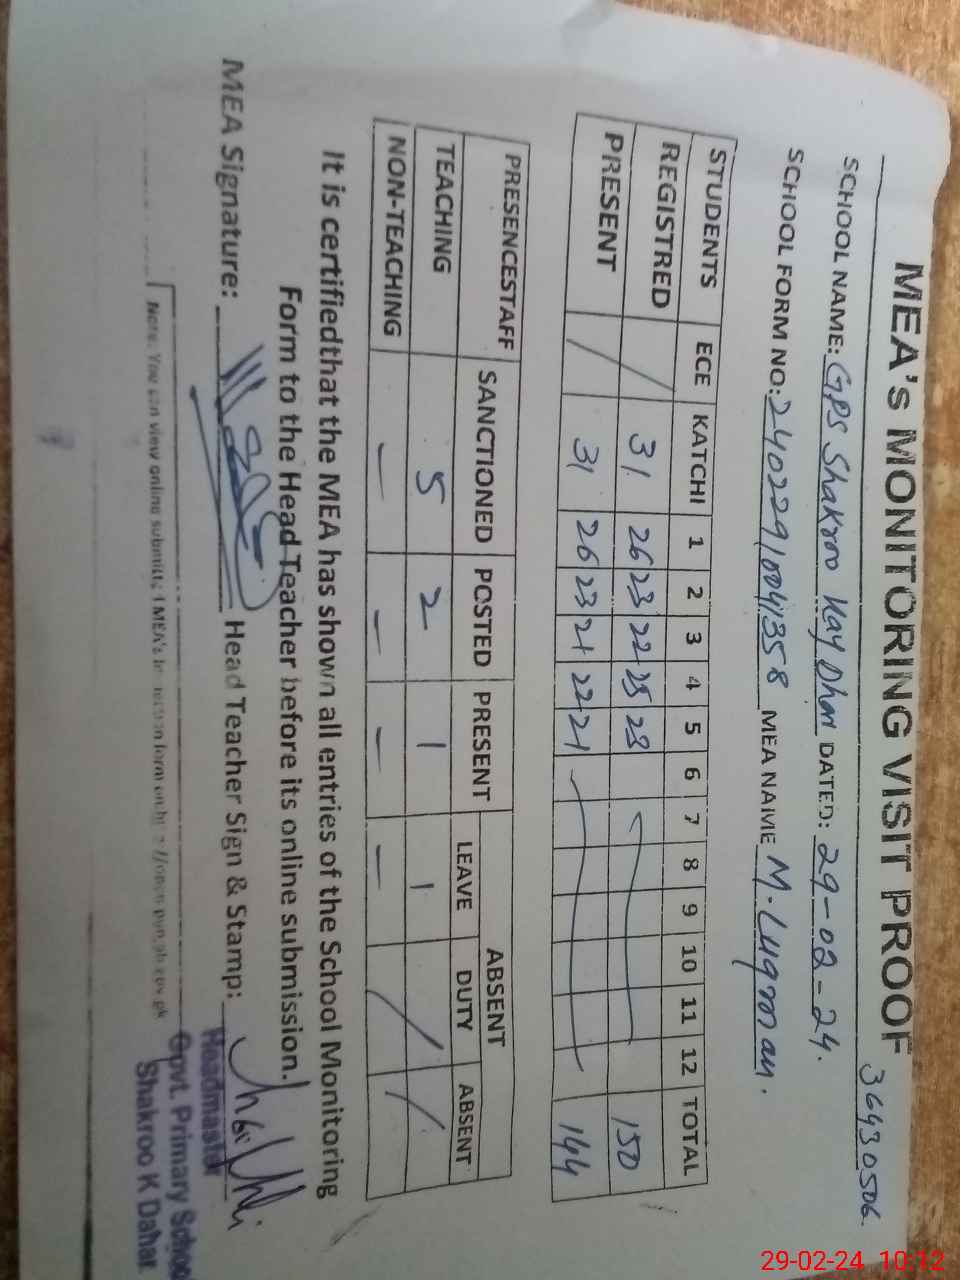 MEA's MONITORING VISIT PROOF
36430506.
SCHOOL NAME: GPS Shakroo Kay Dhar DATED: 29-02-24.
SCHOOL FORM NO: MEA NAME M. Luqman.
STUDENTS ECE KATCHI 1 2 3 4 5 6 7 8 9 10 11 12 TOTAL
REGISTRED / 31 26 23 22 25 23 150
PRESENT / 31 26 23 21 22 21 144
PRESENCESTAFF SANCTIONED POSTED PRESENT ABSENT
LEAVE DUTY ABSENT
TEACHING 5 2 1 1 / /
NON-TEACHING — — — —
It is certifiedthat the MEA has shown all entries of the School Monitoring
Form to the Head Teacher before its online submission.
MEA Signature: Head Teacher Sign & Stamp:
Headmaster
Govt. Primary School
Shakroo K Dahar
Note: You can view online submitted MEA's
29-02-24 10:12